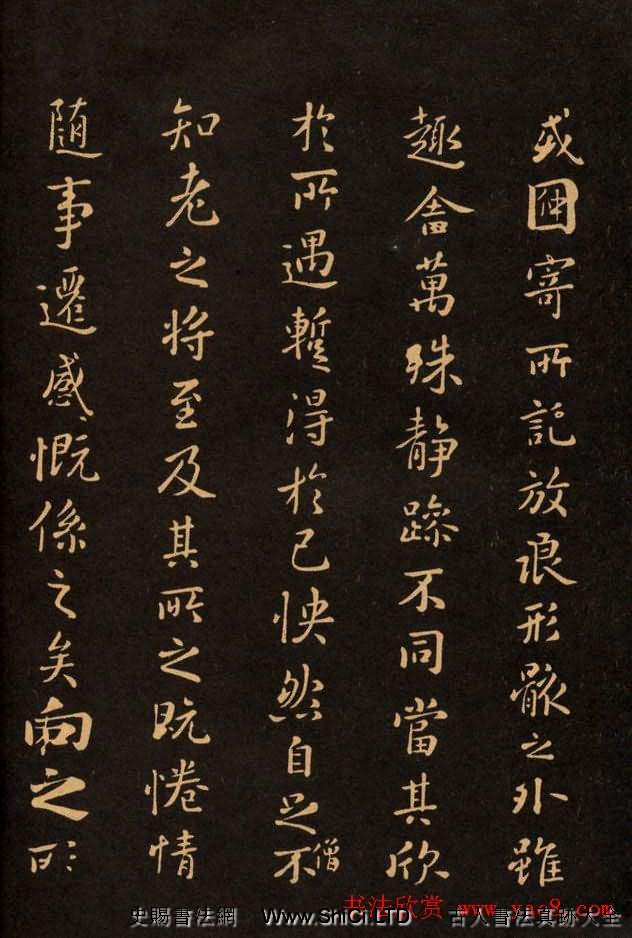 或因寄所託放浪形骸之外雖
趣舍萬殊静躁不同當其欣
於所遇蹔得於己怏然自足不
僧
知老之將至及其所之既惓情
随事遷感慨係之矣向之所
书法欣赏 www.yac8.com
史賜書法網 Www.ShiCi.LTD 古人書法真跡大全